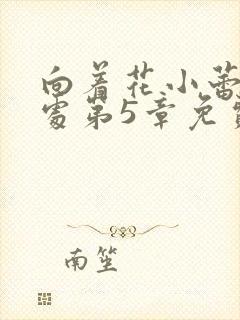 向着花小蕾
处第5章免费
南笙